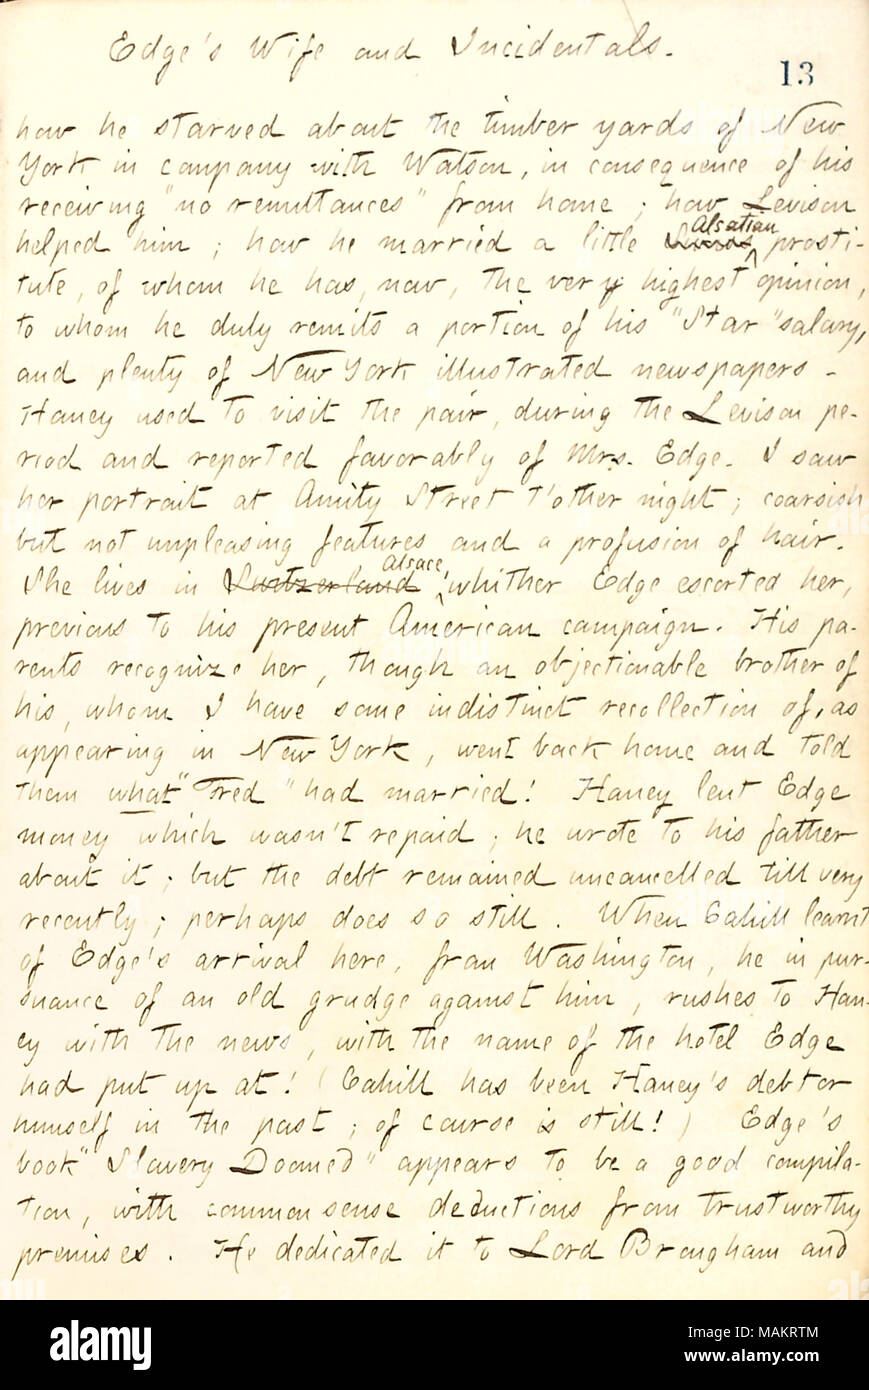 Edge's Wife and Incidentals.
13
how he starved about the timber yards of New
York in company with Watson, in consequence of his
receiving "no remittances" from home; how Levison
helped him; how he married a little Swiss Alsatian prosti-
tute, of whom he has, now, the very highest opinion,
to whom he duly remits a portion of his "Star" salary,
and plenty of New York illustrated newspapers -
Haney used to visit the pair, during the Levison pe-
riod and reported favorably of Mrs. Edge. I saw
her portrait at Amity Street t'other night; coarsish
but not unpleasing features and a profusion of hair.
She lives in Switzerland Alsace, whither Edge escorted her,
previous to his present American campaign. His pa-
rents recognize her, though an objectionable brother of
his, whom I have some indistinct recollection of, as
appearing in New York, went back home and told
them what "Fred" had married! Haney lent Edge
money which wasn't repaid; he wrote to his father
about it; but the debt remained uncancelled till very
recently; perhaps does so still. When Cahill learnt
of Edge's arrival here, from Washington, he in pur-
suance of an old grudge against him, rushes to Han-
ey with the news, with the name of the hotel Edge
had put up at! (Cahill has been Haney's debtor
himself in the past; of course is still!) Edge's
book "Slavery Doomed" appears to be a good compila-
tion, with common sense deductions from trustworthy
premises. He dedicated it to Lord Brougham and
alamy
Image ID: MAKRTM
www.alamy.com